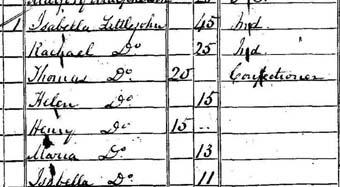 1 Isabella Littlejohn 45 Ind
Rachael Do 25 Ind.
Thomas Do 20 Confectioner
Helen Do 15
Henry Do 15 ..
Maria Do 13
Isabella Do 11